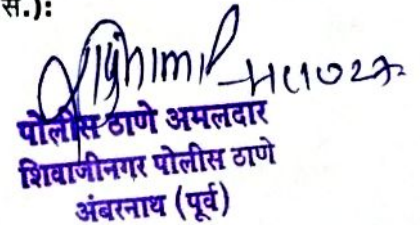 स.):
पोलीस ठाणे अमलदार
शिवाजीनगर पोलीस ठाणे
अंबरनाथ (पूर्व)